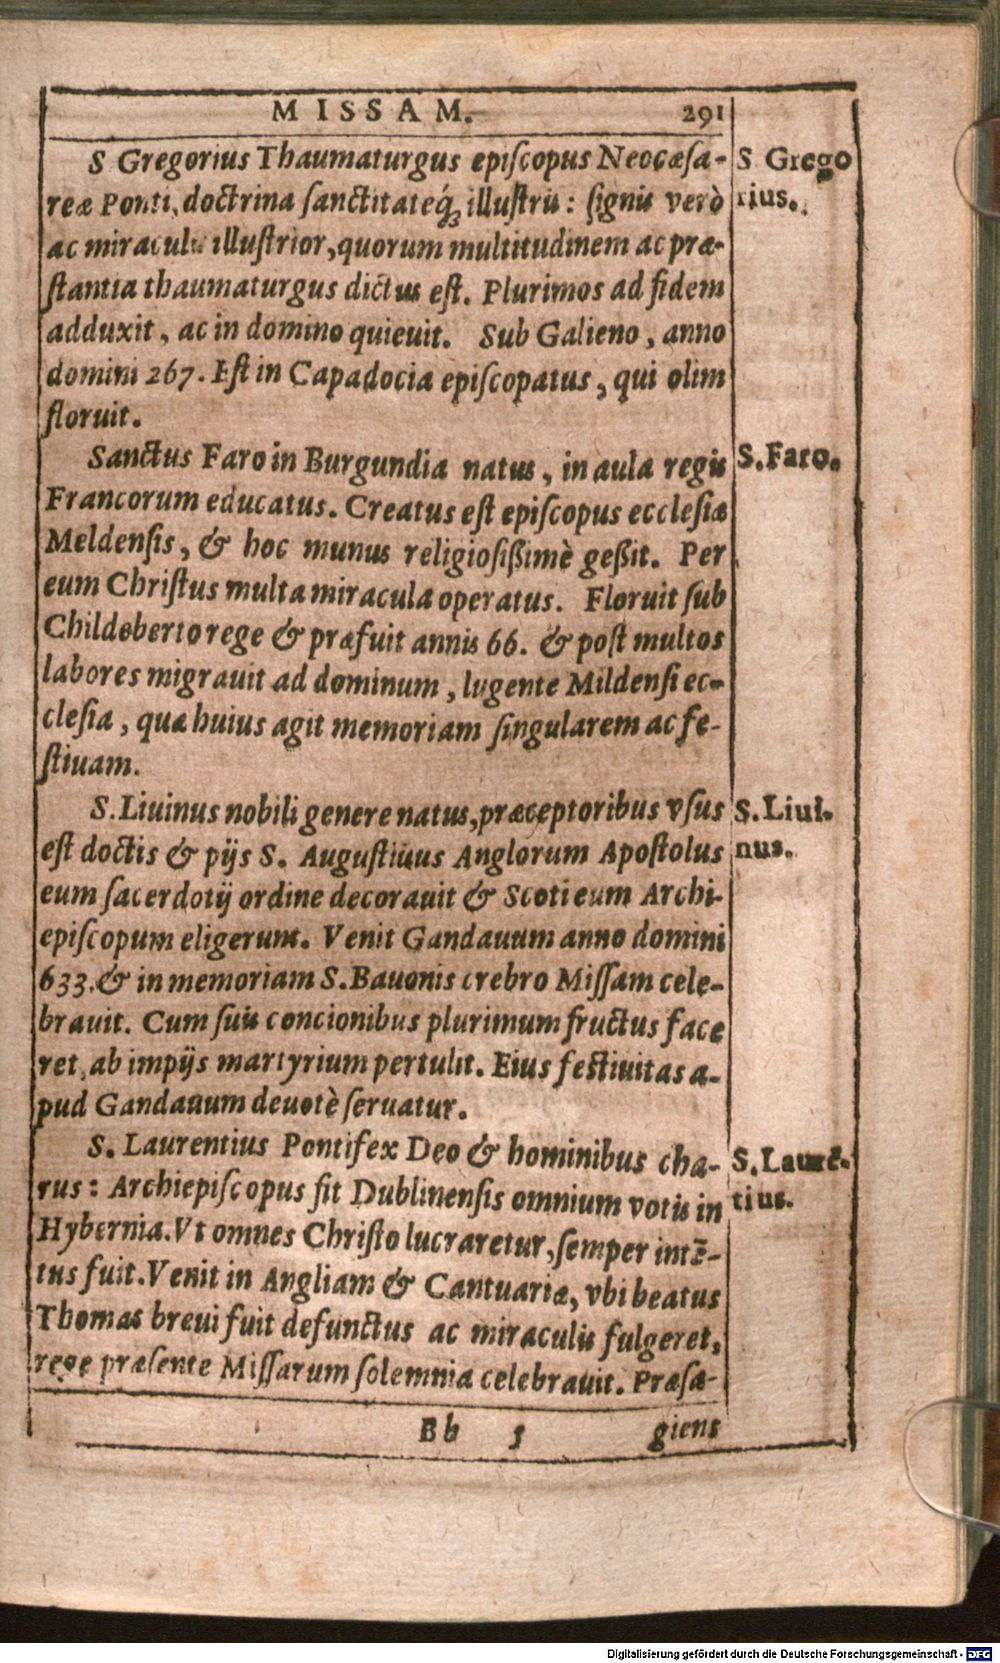 MISSAM. 291
S Gregorius Thaumaturgus episcopus Neocæsa-
reæ Ponti, doctrina sanctitateq́; illustris: signis verò
ac miraculis illustrior, quorum multitudinem ac præ-
stantia thaumaturgus dictus est. Plurimos ad fidem
adduxit, ac in domino quieuit. Sub Galieno, anno
domini 267. Est in Capadocia episcopatus, qui olim
floruit.
S Grego
rius.
Sanctus Faro in Burgundia natus, in aula regis
Francorum educatus. Creatus est episcopus ecclesiæ
Meldensis, & hoc munus religiosißimè geßit. Per
eum Christus multa miracula operatus. Floruit sub
Childeberto rege & præfuit annis 66. & post multos
labores migrauit ad dominum, lugente Mildensi ec-
clesia, quæ huius agit memoriam singularem ac fe-
stiuam.
S. Faro.
S. Liuinus nobili genere natus, præceptoribus vsus
est doctis & pijs S. Augustinus Anglorum Apostolus
eum sacerdotij ordine decorauit & Scoti eum Archi-
episcopum eligerunt. Venit Gandauum anno domini
633. & in memoriam S. Bauonis crebro Missam cele-
brauit. Cum suis concionibus plurimum fructus face
ret, ab impijs martyrium pertulit. Eius festiuitas a-
pud Gandauum deuotè seruatur.
S. Liui-
nus.
S. Laurentius Pontifex Deo & hominibus cha-
rus: Archiepiscopus fit Dublinensis omnium votis in
Hybernia. Vt omnes Christo lucraretur, semper intē-
tus fuit. Venit in Angliam & Cantuariæ, vbi beatus
Thomas breui fuit defunctus ac miraculis fulgeret,
rege præsente Missarum solemnia celebrauit. Præsa-
S. Laurē-
tius.
Bb 5 giens
Digitalisierung gefördert durch die Deutsche Forschungsgemeinschaft - DFG